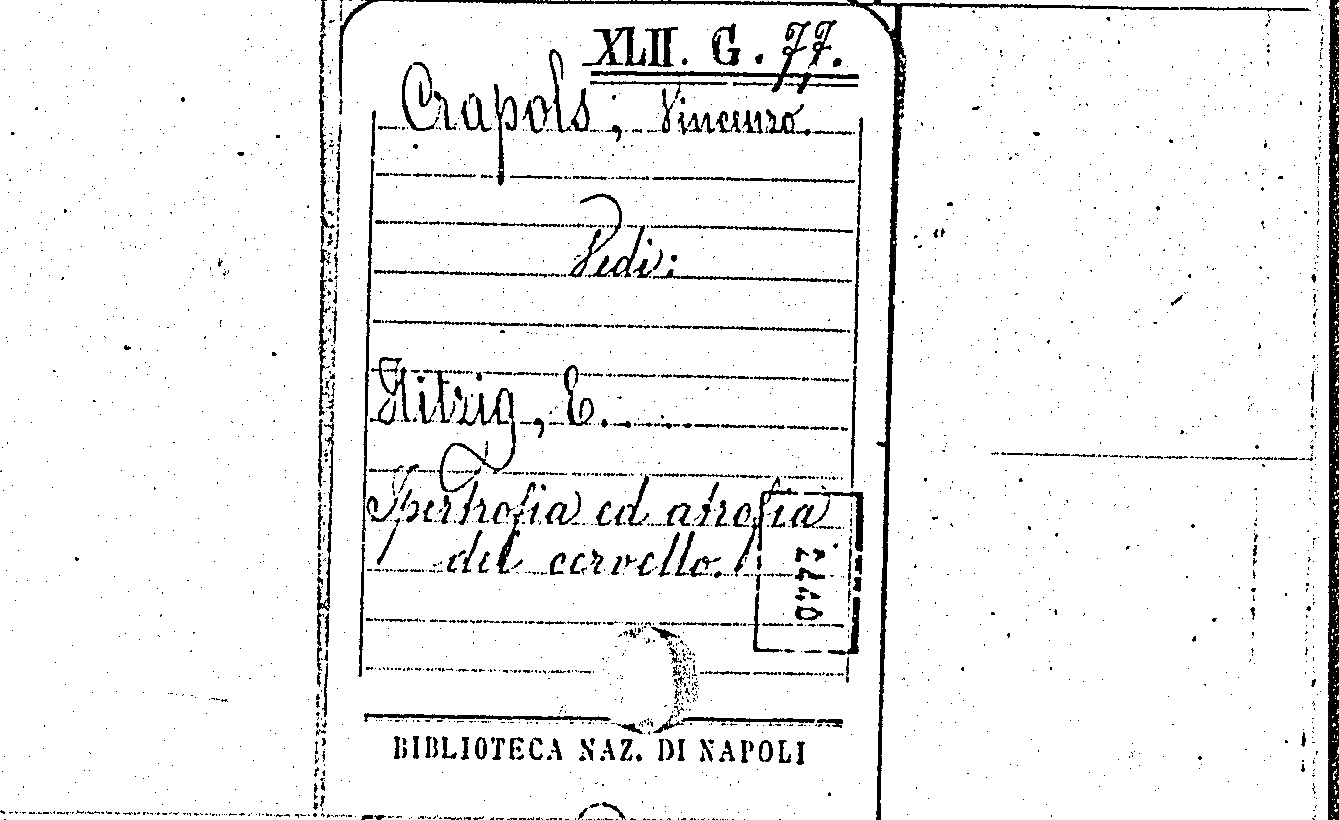 XLII. G. 77.
Crapols, Vincenzo.
Vedi:
Hitzig, E.
Ipertrofia ed atrofia
del cervello.
2440
BIBLIOTECA NAZ. DI NAPOLI